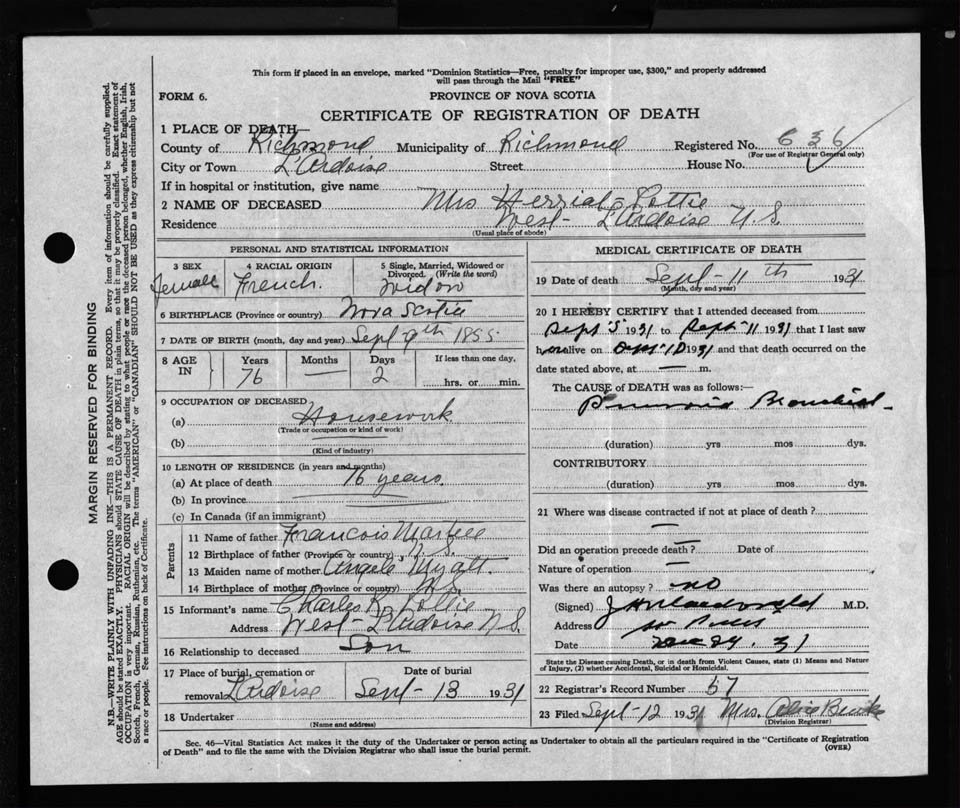 This form if placed in an envelope, marked "Dominion Statistics—Free, penalty for improper use, $300," and properly addressed
will pass through the Mail "FREE"
FORM 6.
PROVINCE OF NOVA SCOTIA
CERTIFICATE OF REGISTRATION OF DEATH
1 PLACE OF DEATH—
County of Richmond Municipality of Richmond Registered No. 636
(For use of Registrar General only)
City or Town L'Ardoise Street House No.
If in hospital or institution, give name
2 NAME OF DECEASED Mrs Pottie
Residence West L'Ardoise N.S.
(Usual place of abode)
PERSONAL AND STATISTICAL INFORMATION
3 SEX Female
4 RACIAL ORIGIN French.
5 Single, Married, Widowed or Divorced. (Write the word) Widow
6 BIRTHPLACE (Province or country) Nova Scotia
7 DATE OF BIRTH (month, day and year) Sept 9th 1855
8 AGE IN Years 76 Months — Days 2 If less than one day, hrs. or min.
9 OCCUPATION OF DECEASED
(a) Housework
(Trade or occupation or kind of work)
(b)
(Kind of industry)
10 LENGTH OF RESIDENCE (in years and months)
(a) At place of death 76 years.
(b) In province
(c) In Canada (if an immigrant)
Parents
11 Name of father Francois Martell
12 Birthplace of father (Province or country) N.S.
13 Maiden name of mother Angele Myatt.
14 Birthplace of mother (Province or country) N.S.
15 Informant's name Charles K. Pottie
Address West-L'Ardoise N.S.
16 Relationship to deceased Son
17 Place of burial, cremation or removal L'Ardoise
Date of burial Sept-13 1931
18 Undertaker
(Name and address)
MEDICAL CERTIFICATE OF DEATH
19 Date of death Sept-11th 1931
(Month, day and year)
20 I HEREBY CERTIFY that I attended deceased from
Sept 5 1931 to Sept 11 1931 that I last saw
her alive on 10 1931 and that death occurred on the
date stated above, at — m.
The CAUSE of DEATH was as follows:—
Pneumonia Bronchial.
(duration) yrs mos dys.
CONTRIBUTORY
(duration) yrs mos dys.
21 Where was disease contracted if not at place of death?
—
Did an operation precede death? — Date of
Nature of operation —
Was there an autopsy? no
(Signed) M.D.
Address
Date 31
State the Disease causing Death, or in death from Violent Causes, state (1) Means and Nature
of Injury, (2) whether Accidental, Suicidal or Homicidal.
22 Registrar's Record Number 57
23 Filed Sept-12 1931 Mrs.
(Division Registrar)
Sec. 46—Vital Statistics Act makes it the duty of the Undertaker or person acting as Undertaker to obtain all the particulars required in the "Certificate of Registration
of Death" and to file the same with the Division Registrar who shall issue the burial permit.
(OVER)
MARGIN RESERVED FOR BINDING
N.B.—WRITE PLAINLY WITH UNFADING INK—THIS IS A PERMANENT RECORD. Every item of information should be carefully supplied.
AGE should be stated EXACTLY. PHYSICIANS should STATE CAUSE OF DEATH in plain terms, so that it may be properly classified. Exact statement of
OCCUPATION is very important. RACIAL ORIGIN will be described by stating to what people or race the deceased person belonged, whether English, Irish,
Scotch, French, German, Russian, Ruthenian, etc. The terms "AMERICAN" or "CANADIAN" SHOULD NOT BE USED as they express citizenship but not
a race or people. See instructions on back of Certificate.